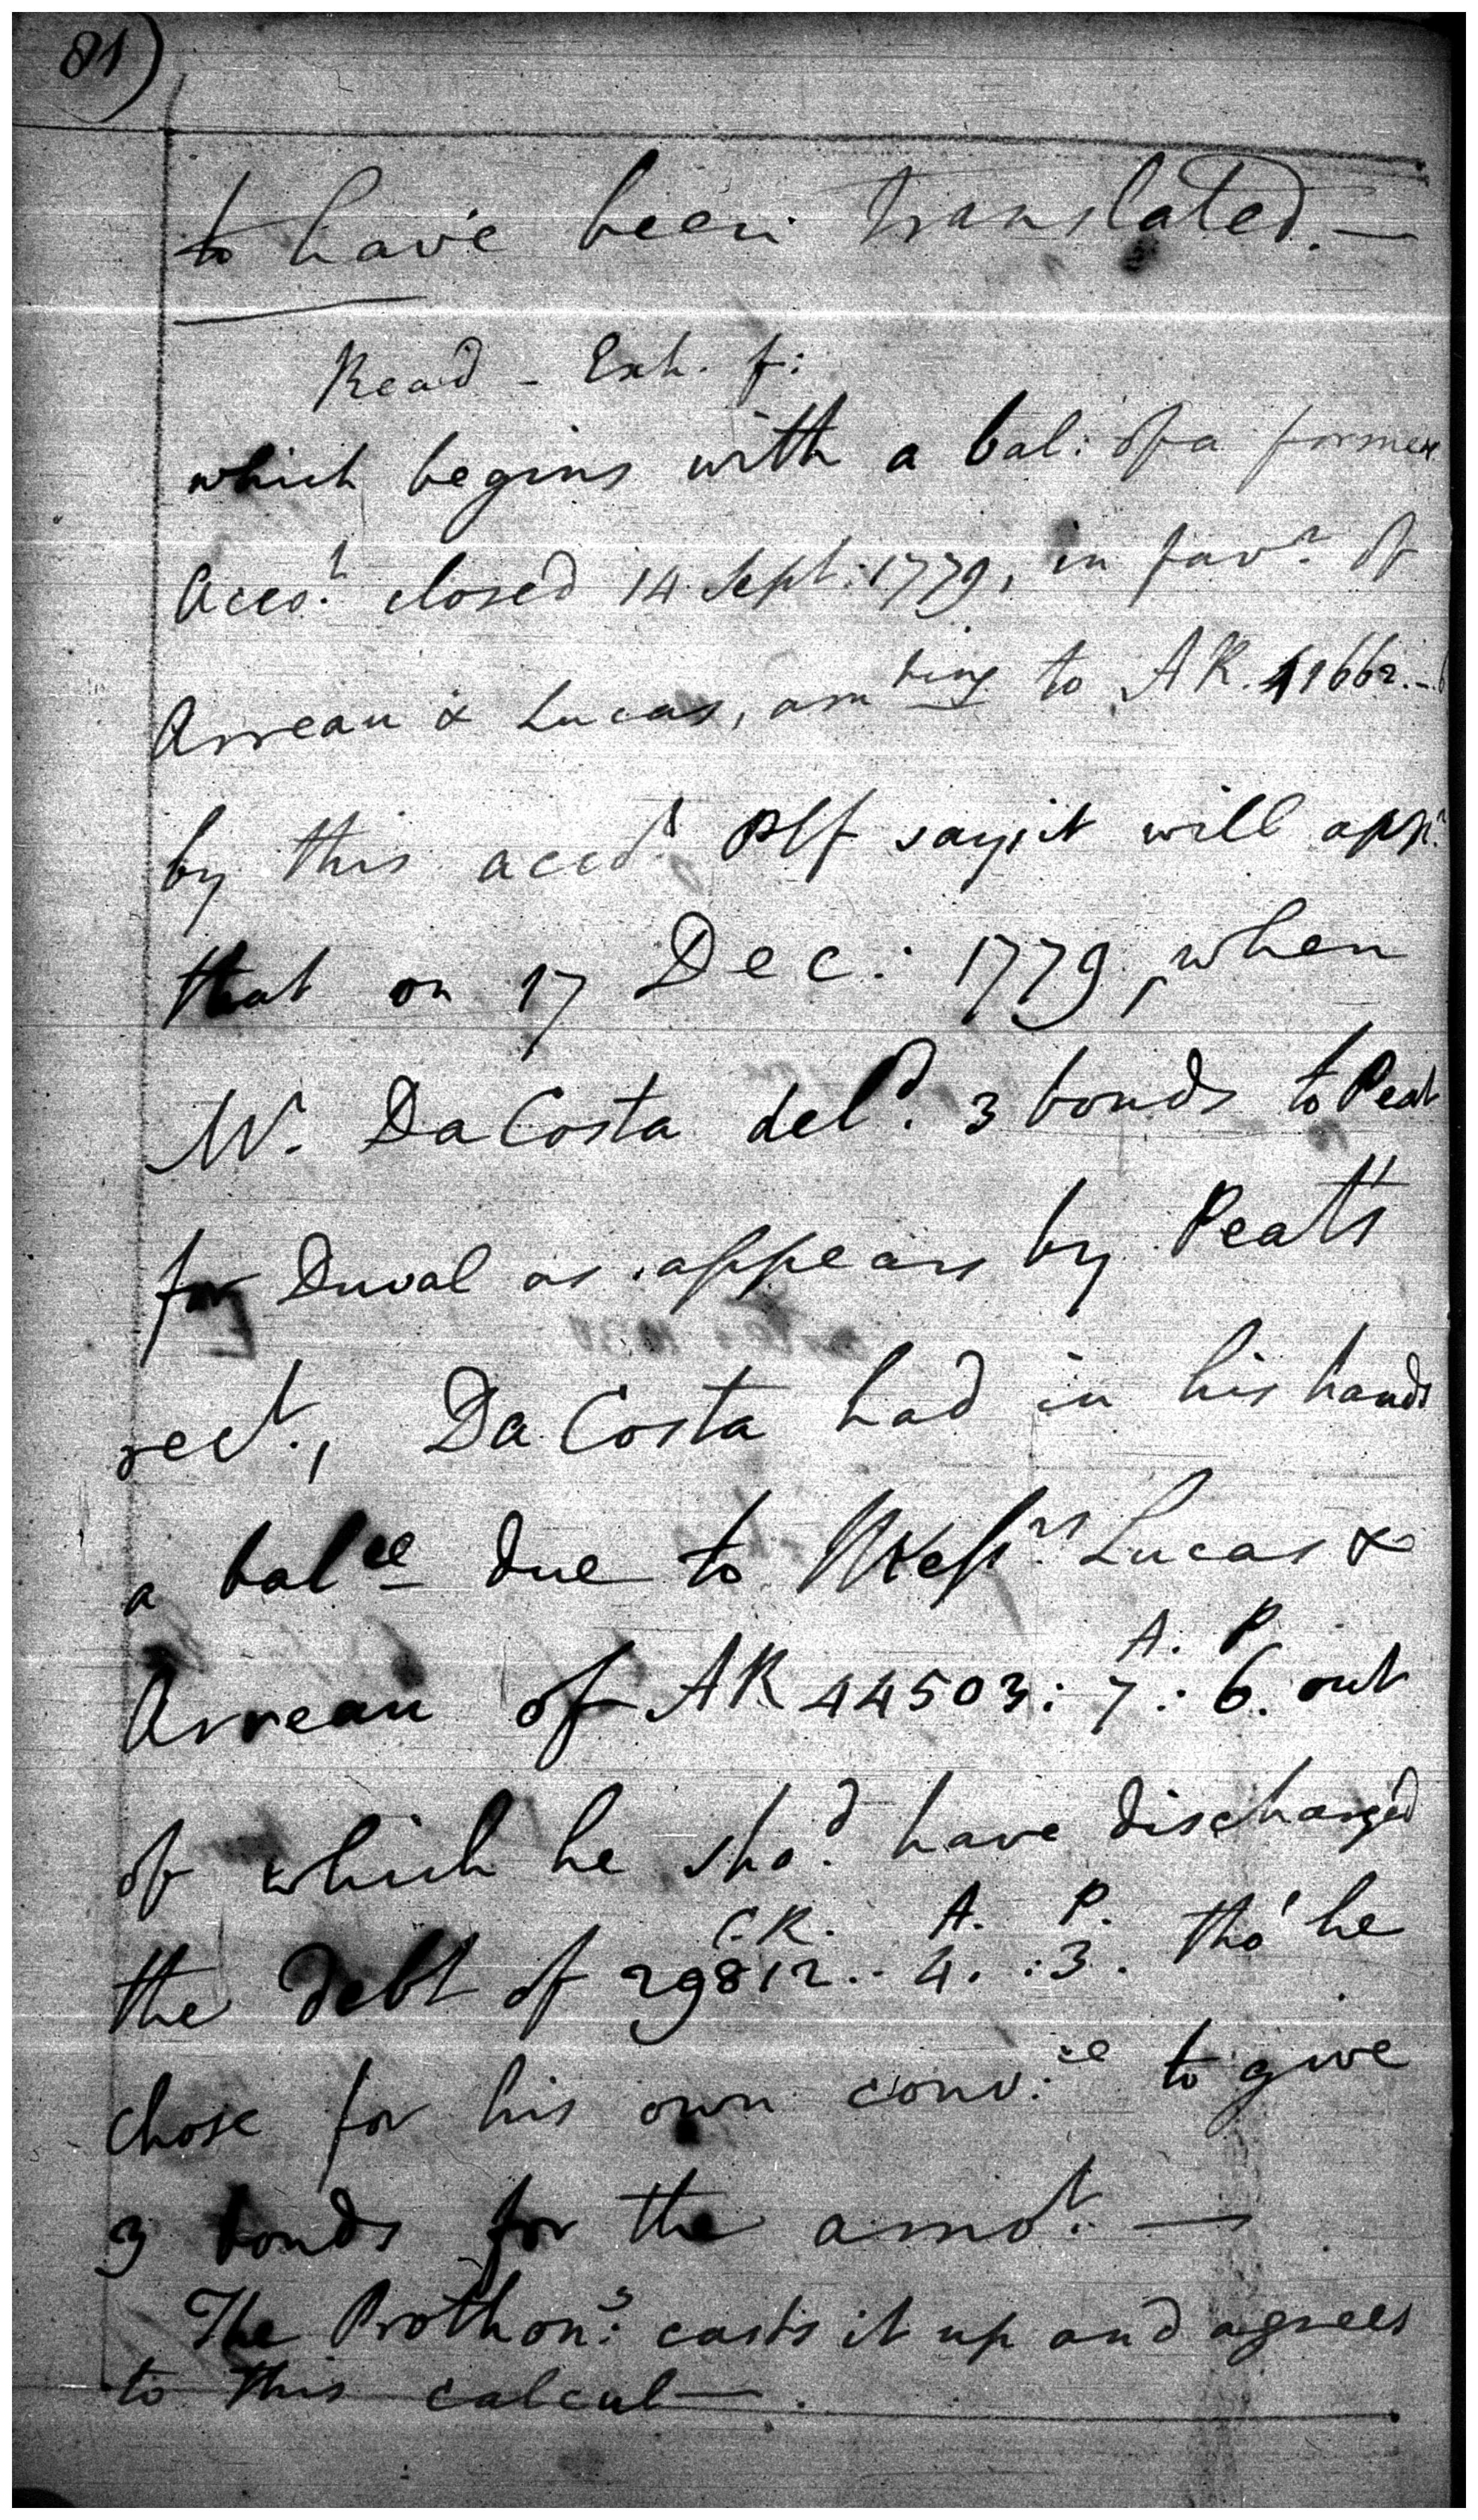 81)
to have been translated.—
Read - Exh. f:
which begins with a bal: of a former
Acco.t closed 14 Sept: 1779, in fav.r of
Arreau & Lucas, am.ting to AR. 41662.-6
by this acco.t Plf says it will app.r
that on 17 Dec: 1779, when
Mr. DaCosta del.d 3 bonds to Peat
for Duval as appears by Peat's
rect., Da Costa had in his hands
a bal.ce due to Mess.rs Lucas &
A. P
Arreau of AR 44503: 7: 6. out
of which he sho.d have discharged
C.R. A. P.
the debt of 29812.. 4. :3. tho' he
chose for his own conv:ce to give
3 bonds for the amo.t —
The Prothon:s casts it up and agrees
to this calcul—.